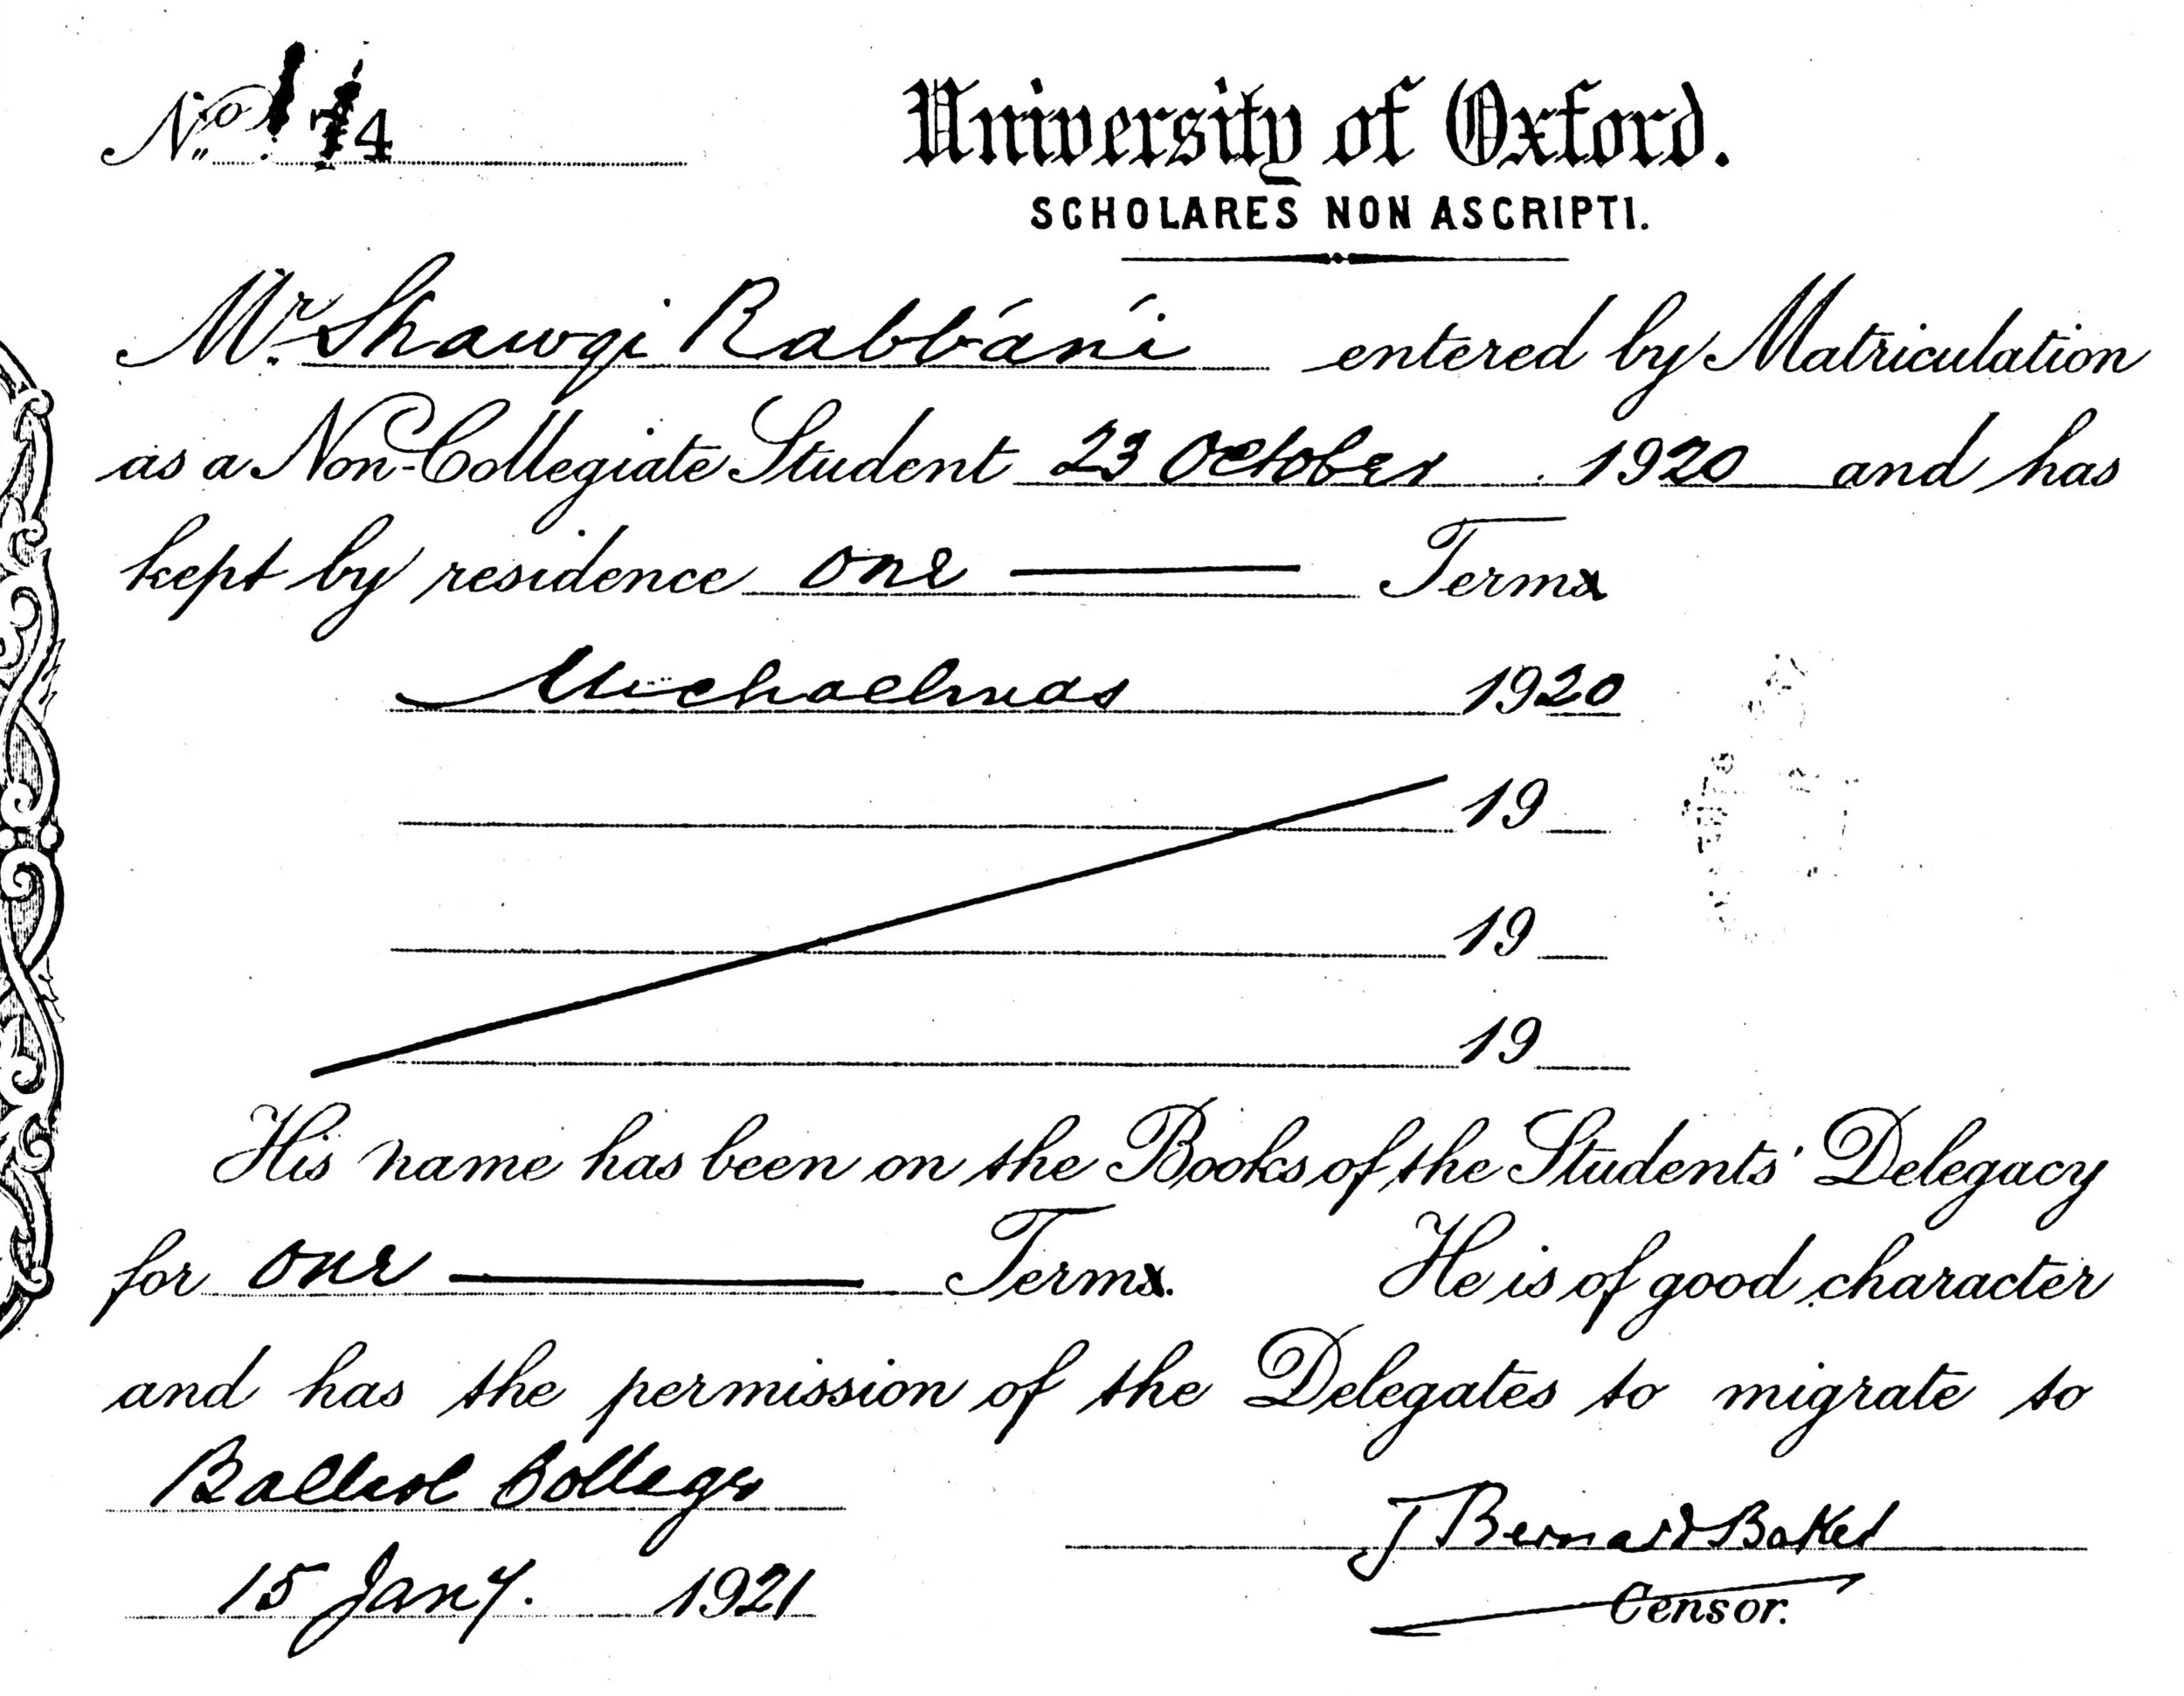 No. 74
University of Oxford.
SCHOLARES NON ASCRIPTI.
Mr. Shawqi Rabbání entered by Matriculation
as a Non-Collegiate Student 23 October 1920 and has
kept by residence one Term
Michaelmas 1920
19
19
19
His name has been on the Books of the Students' Delegacy
for one Term. He is of good character
and has the permission of the Delegates to migrate to
Balliol College
J Bernard Baker
15 Jany. 1921
Censor.